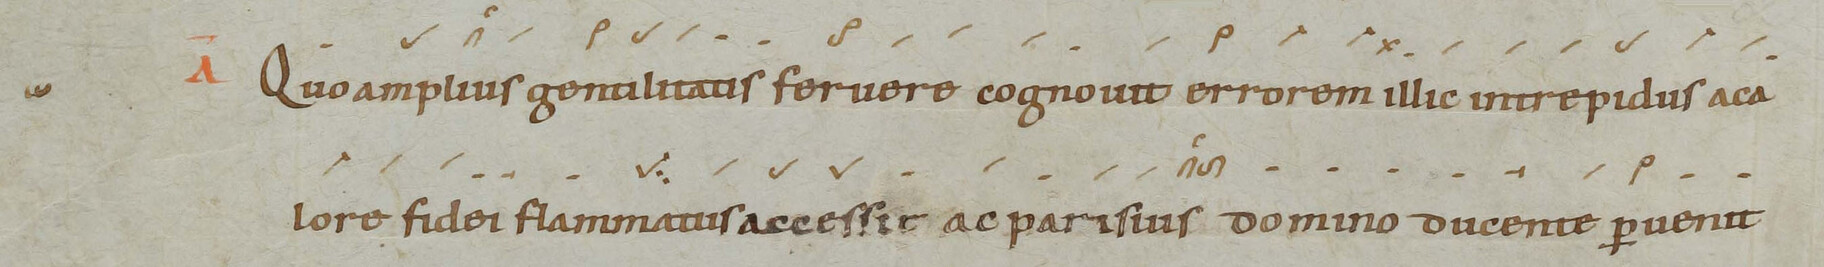 A Quo amplius gentilitatis feruere cognouit errorem illic intrepidus aca
lore fidei flammatus accessit ac parisius domino ducente ꝑuenit